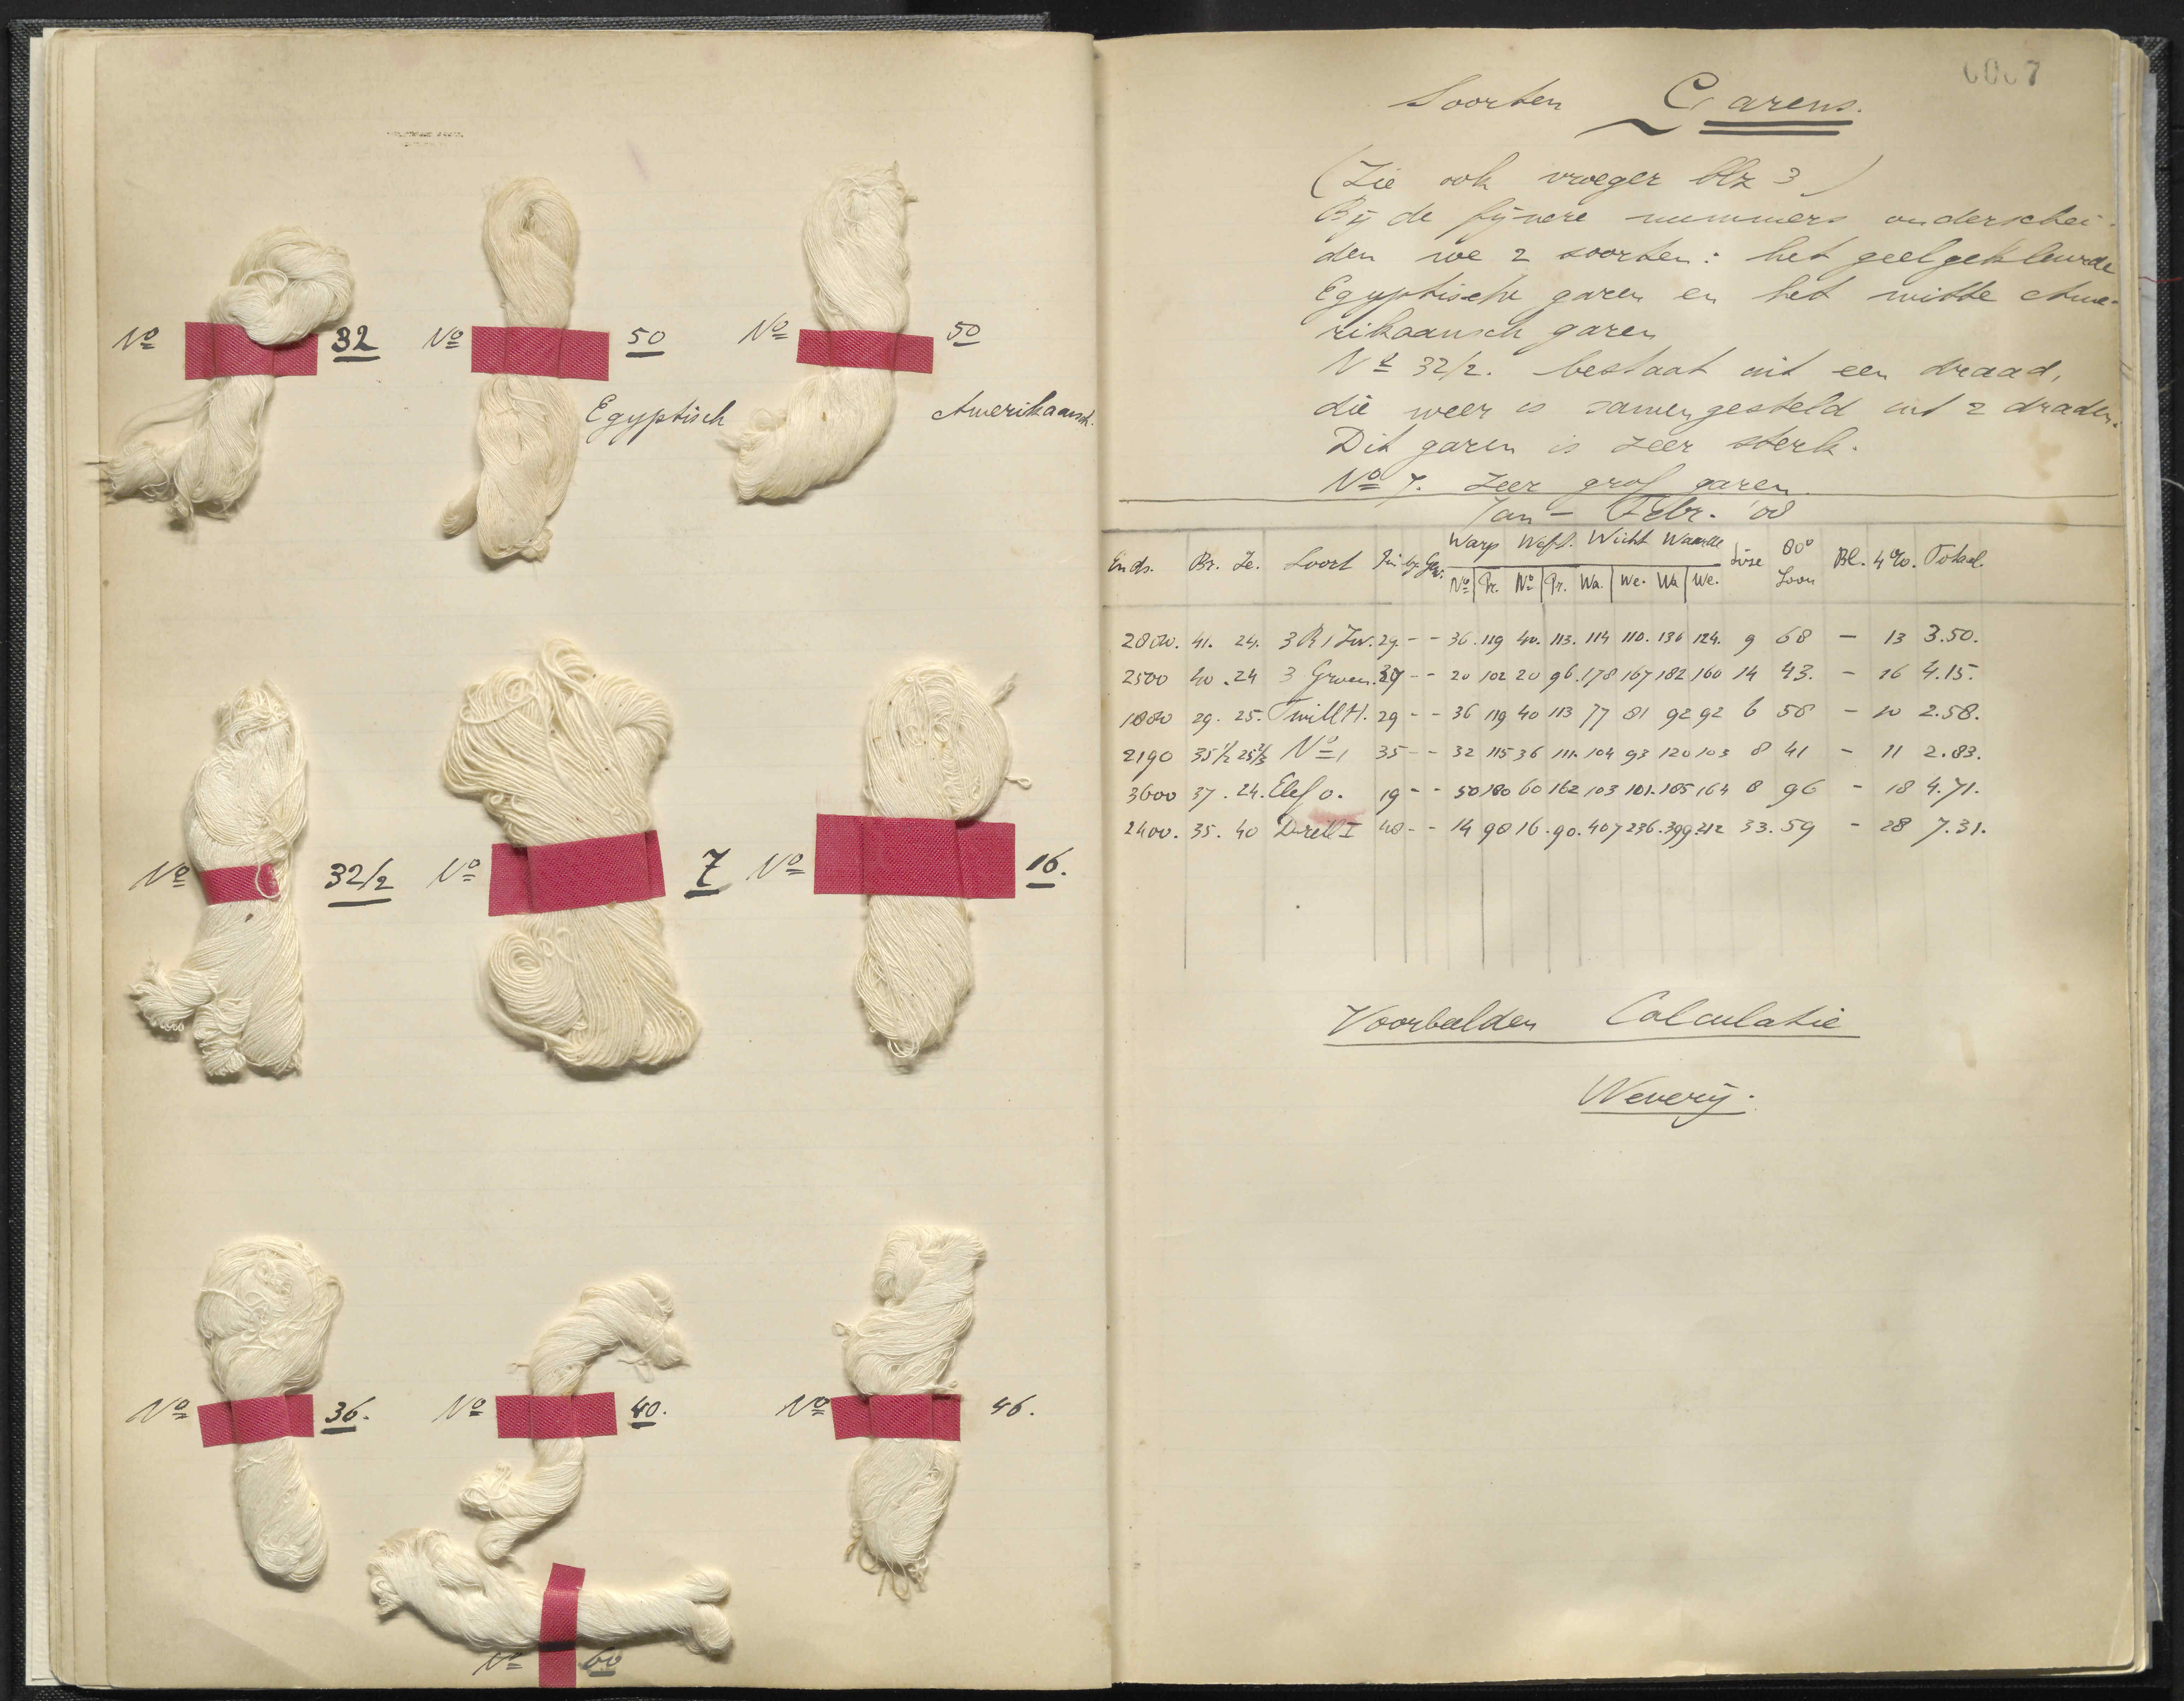 Nº 32
Nº 50
Egyptisch
Nº 50
Amerikaansch.
Nº 32/2
Nº 7
Nº 16.
Nº 36.
Nº 40.
Nº 46.
Nº 60
0007
Soorten Garens.
(Zie ook vroeger blz 3)
Bij de fijnere nummers onderschei-
den we 2 soorten: het geelgekleurde
Egyptische garen en het witte Ame-
rikaansch garen
Nº 32/2. bestaat uit een draad,
die weer is samengesteld uit 2 draden.
Dit garen is zeer sterk.
Nº 7. Zeer grof garen.
Jan - Febr. '08
Warp Weft. Wicht Waarde
Ends. Br. Le. Soort Gew. Nº Pr. Nº Pr. Wa. We. Wa We. Loon Bl. 4%. Totaal.
41. 24. 29. - - 36. 119 40. 113. 114 110. 136 124. 9 68 - 13 3.50.
2500 40. 24 3 Groen. - - 20 102 20 96. 178 167 182 160 14 43. - 16 4.15.
29. 25. Twill H. 29 - - 36 119 40 113 77 81 92 92 6 58 - 10 2.58.
2190 35½ Nº 1 35 - - 32 115 36 111. 104 93 120 103 8 41 - 11 2.83.
3600 37. 24. 19 - - 50 180 60 162 103 101. 185 164 8 96 - 18 4.71.
2400. 35. 40 Drell I 48 - - 14 98 16. 90. 407 236. 399 212 33. 59 - 28 7.31.
Voorbeelden Calculatie
Weverij.